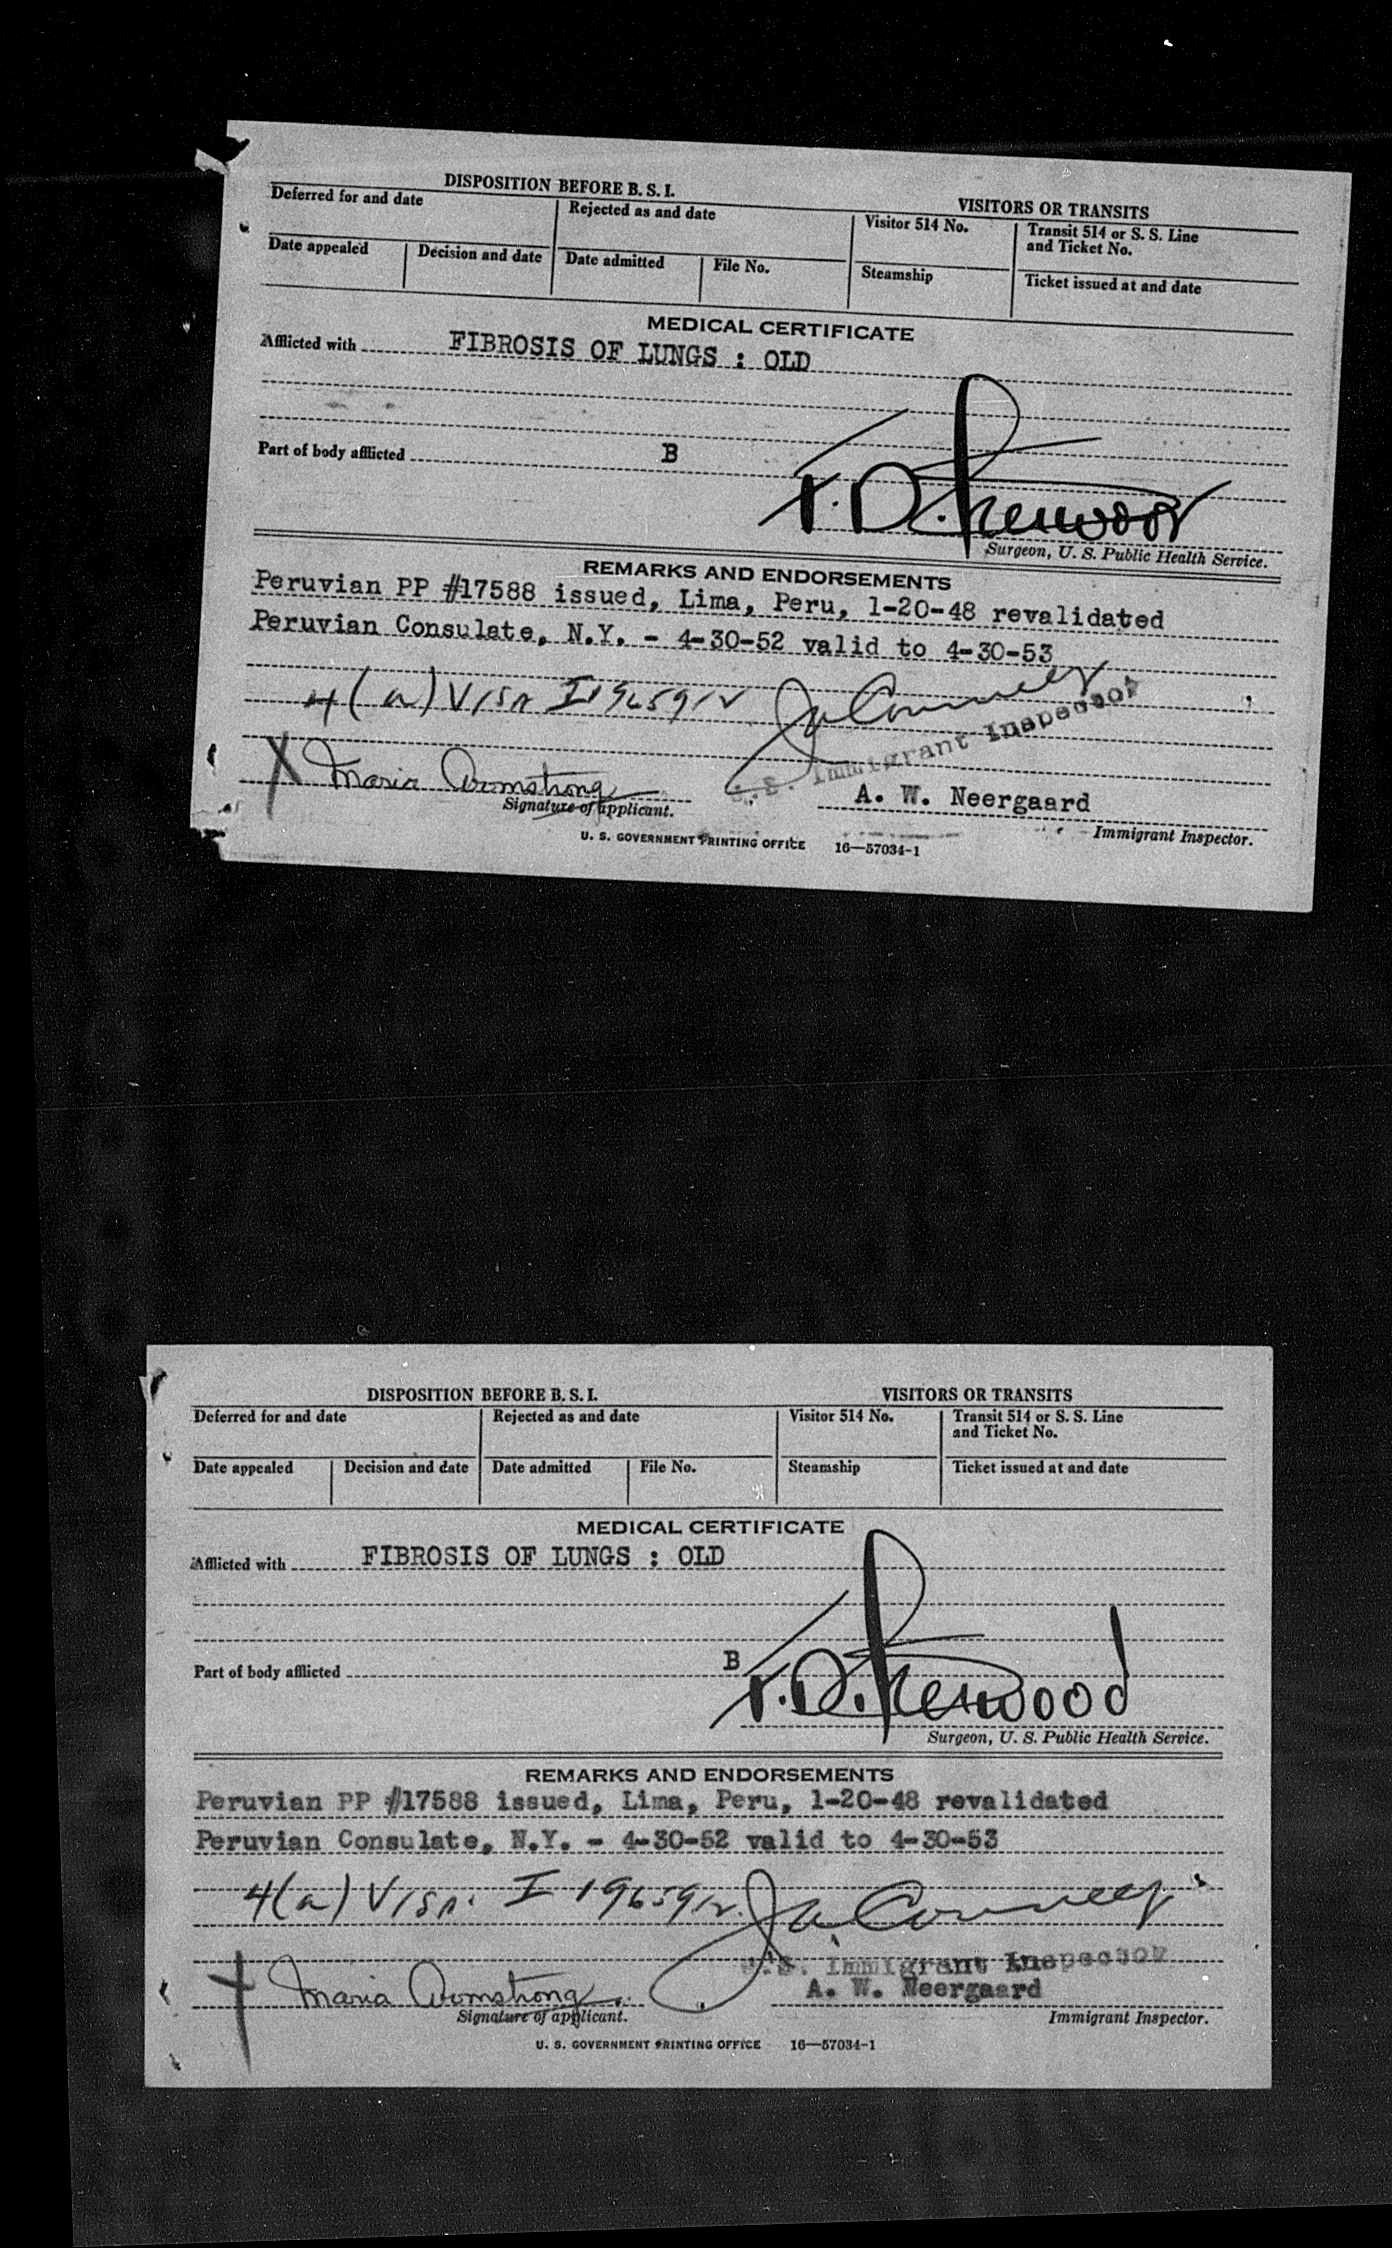 DISPOSITION BEFORE B. S. I.
VISITORS OR TRANSITS
Deferred for and date
Rejected as and date
Visitor 514 No.
Transit 514 or S. S. Line
and Ticket No.
Date appealed
Decision and date
Date admitted
File No.
Steamship
Ticket issued at and date
MEDICAL CERTIFICATE
Afflicted with FIBROSIS OF LUNGS : OLD
Part of body afflicted B
Surgeon, U. S. Public Health Service.
REMARKS AND ENDORSEMENTS
Peruvian PP #17588 issued, Lima, Peru, 1-20-48 revalidated
Peruvian Consulate, N.Y. - 4-30-52 valid to 4-30-53
4(a) Visa I
U.S. Immigrant Inspector
X Maria Armstrong
A. W. Neergaard
Signature of applicant.
Immigrant Inspector.
U. S. GOVERNMENT PRINTING OFFICE 16—57034-1
DISPOSITION BEFORE B. S. I.
VISITORS OR TRANSITS
Deferred for and date
Rejected as and date
Visitor 514 No.
Transit 514 or S. S. Line
and Ticket No.
Date appealed
Decision and date
Date admitted
File No.
Steamship
Ticket issued at and date
MEDICAL CERTIFICATE
Afflicted with FIBROSIS OF LUNGS : OLD
Part of body afflicted B
Surgeon, U. S. Public Health Service.
REMARKS AND ENDORSEMENTS
Peruvian PP #17588 issued, Lima, Peru, 1-20-48 revalidated
Peruvian Consulate, N.Y. - 4-30-52 valid to 4-30-53
4(a) Visa. I
U.S. Immigrant Inspector
X Maria Armstrong
A. W. Neergaard
Signature of applicant.
Immigrant Inspector.
U. S. GOVERNMENT PRINTING OFFICE 16—57034-1